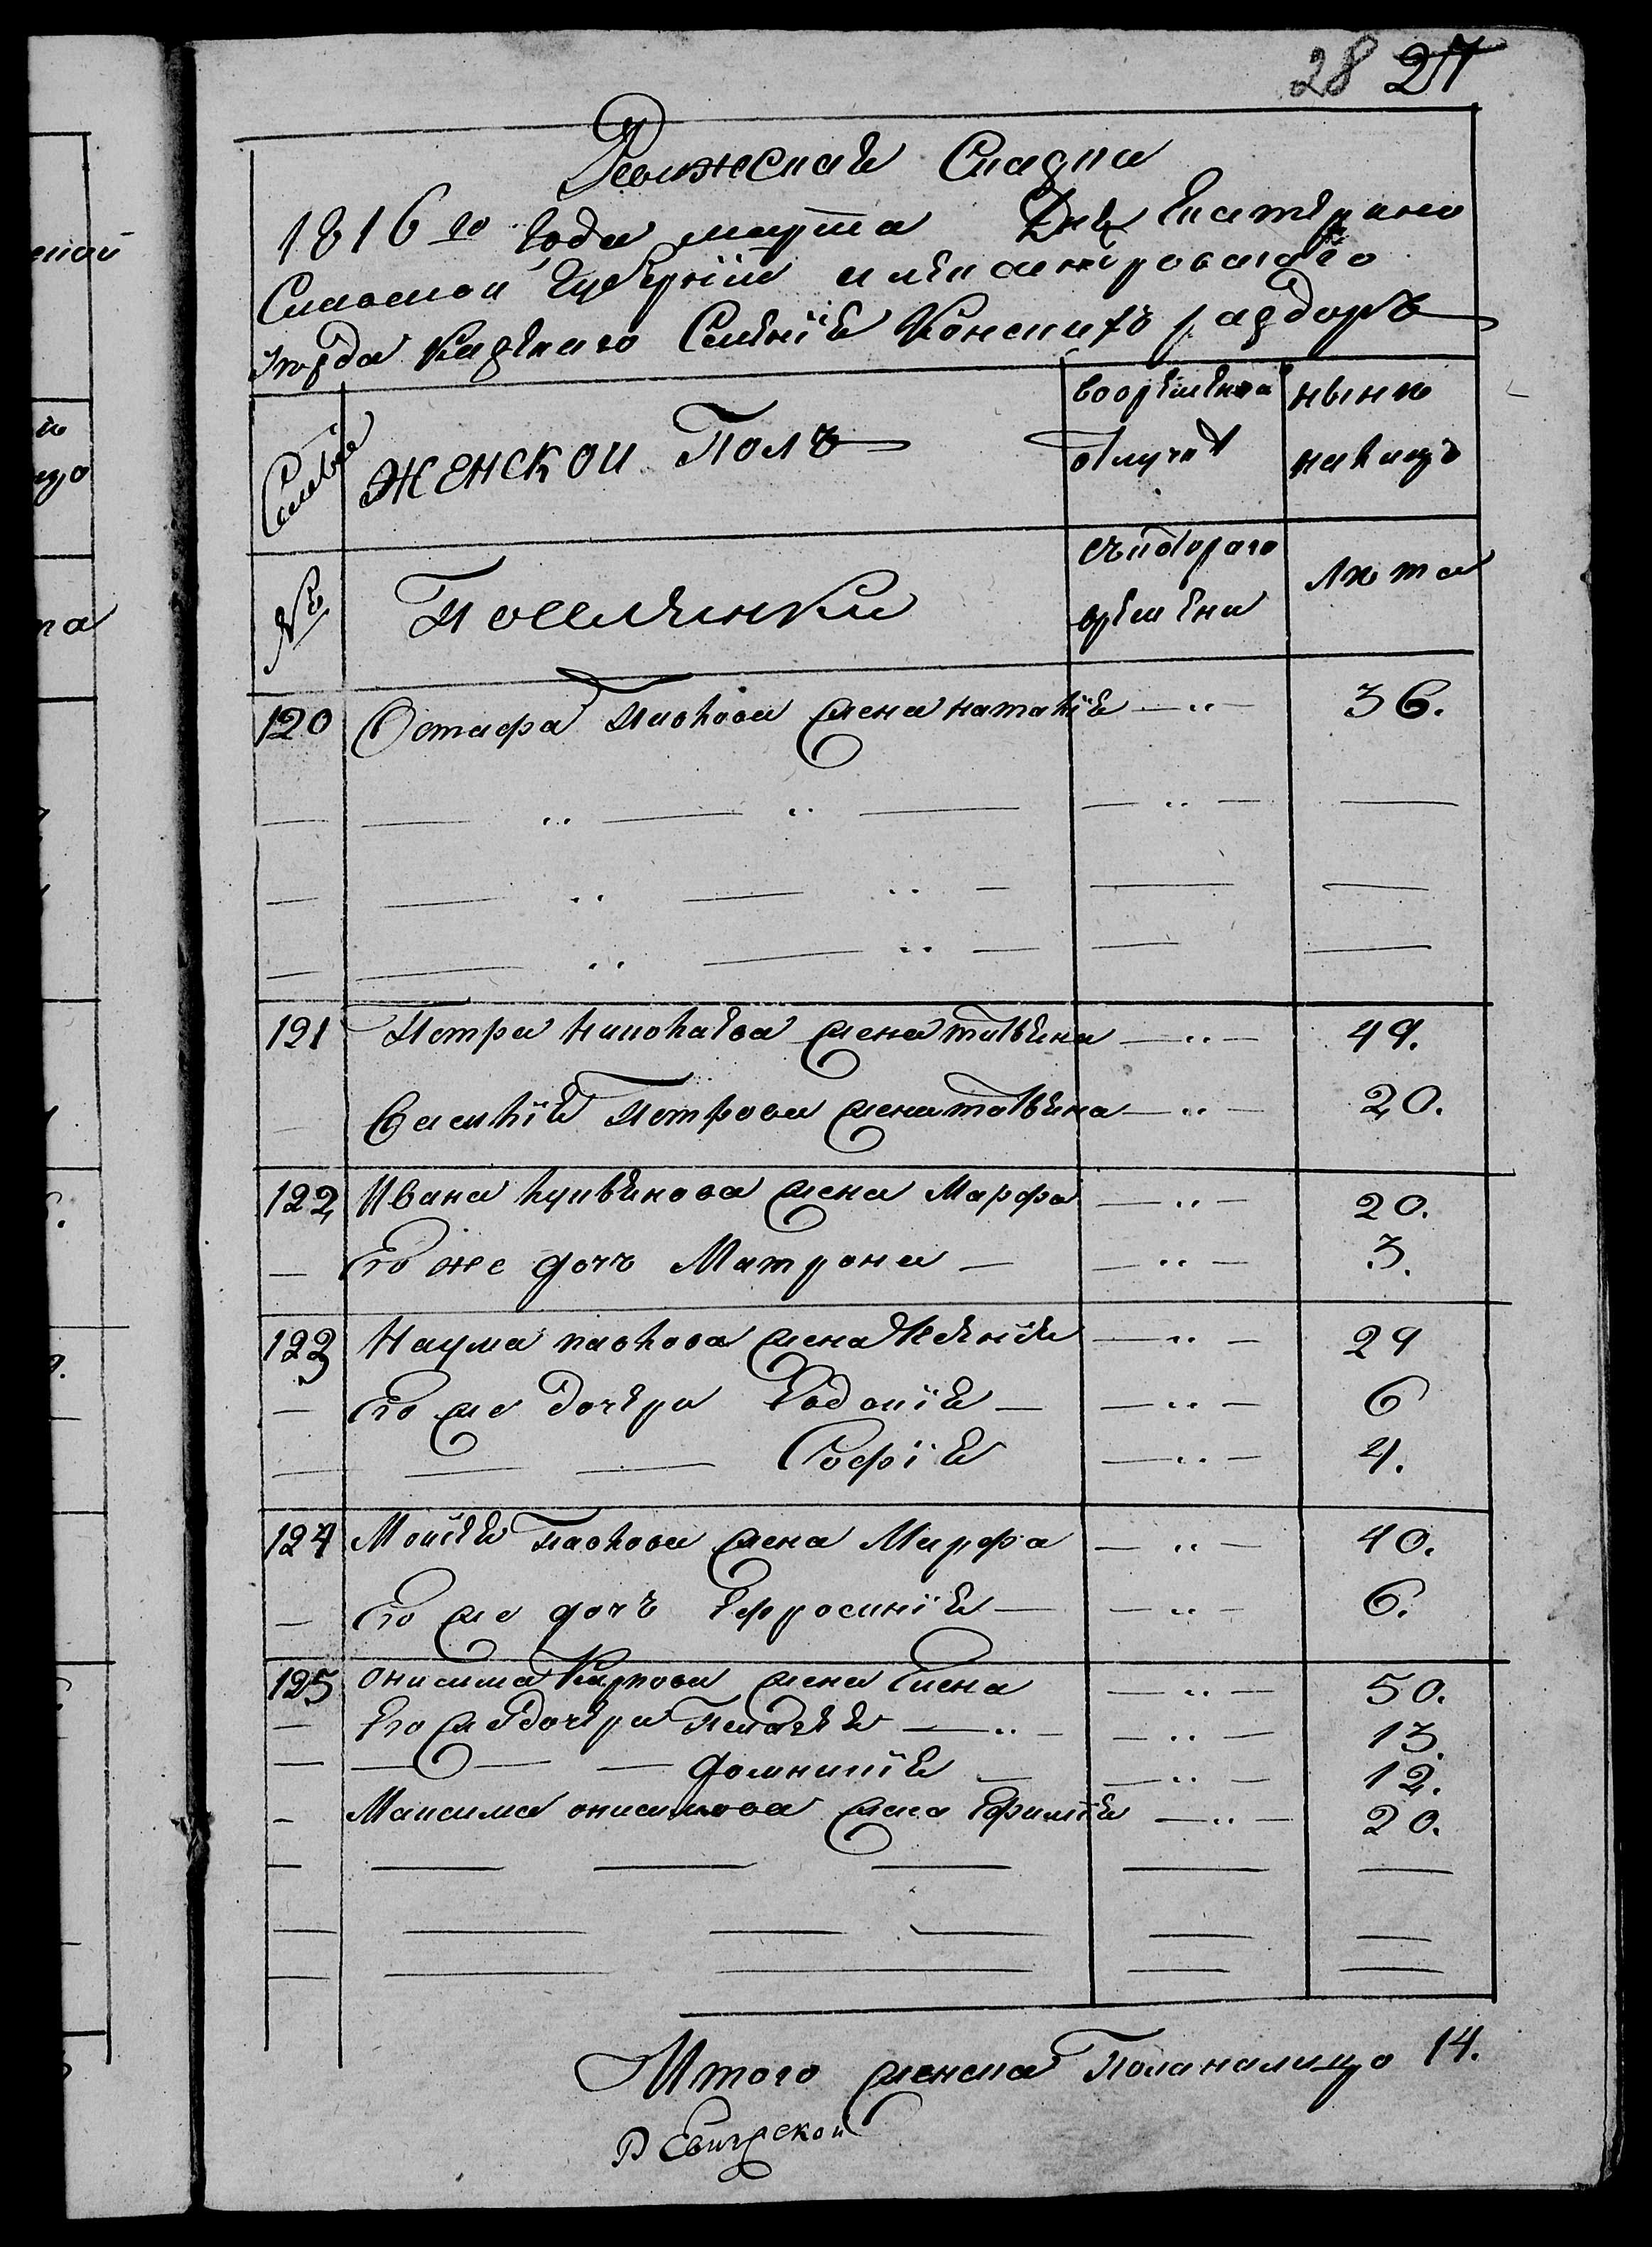 28 27
Ревижская Сказка
1816го года марта Дня Екатерино
Славской Губернии александровскаго
уезда Казенаго Селения Конскихъ раздоръ
Семьи
женской Полъ
во временной
отлучке
ныне
налицо
№
Поселянки
съ котораго
времени
лета
120 Остафа Павлова жена наталия — " — 36.
121 Петра Николаева жена татьяна — " — 49.
Василия Петрова жена татьяна — " — 20.
122 Ивана жена Марфа — " — 20.
— Его же дочь Матрона — — " — 3.
123 Наума павлова жена Ксения — " — 29
— Его же дочери Евдокия — — " — 6
София — " — 4.
124 Мойсея Павлова жена Марфа — " — 40.
— Его же дочь Ефросиния — — " — 6.
125 Онисима Карпова жена Елена — " — 50.
— Его же дочери Пелагея — " — 13.
Домникия — " — 12.
— Максима онисимова жена Ефимия — " — 20.
Итого женска Пола налицо 14.